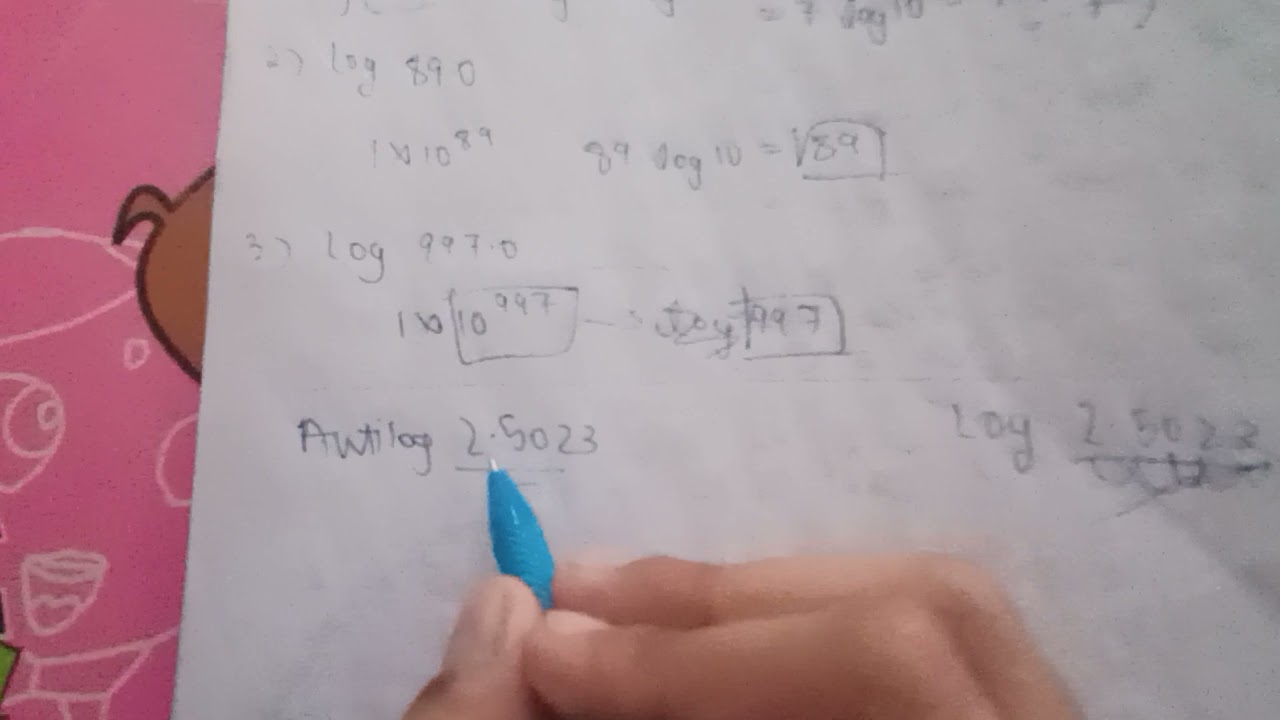 = 7 log 10
2) log 890
1 x 10^89 89 log 10 = 89
3) log 997.0
1 x 10^997 997
Antilog 2.5023 Log 2.5023